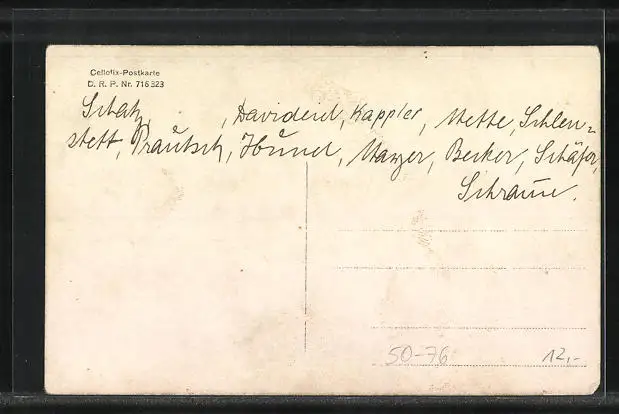 Cellofix-Postkarte
D. R. P. Nr. 716323
Schatz, , Davideid, Kappler, Mette, Schlen=
stett, Prautsch, Hŭnd, Manzer, Becker, Schäfer,
Schramm.
50-76 12,-